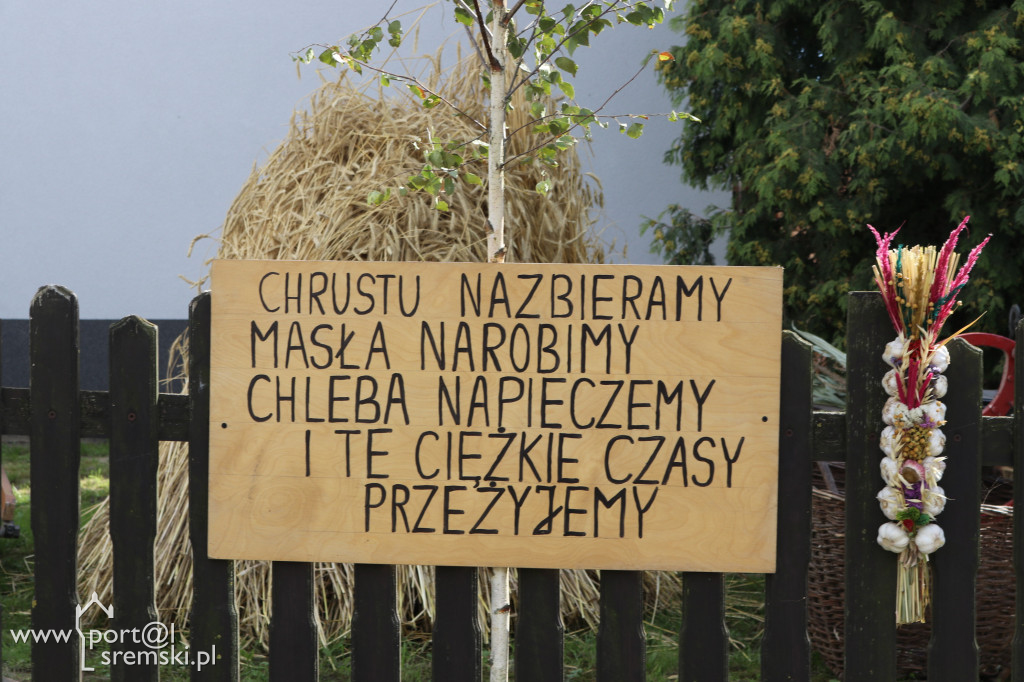 CHRUSTU NAZBIERAMY
MASŁA NAROBIMY
CHLEBA NAPIECZEMY
I TE CIĘŻKIE CZASY
PRZEŻYJEMY
www.port@l
sremski.pl